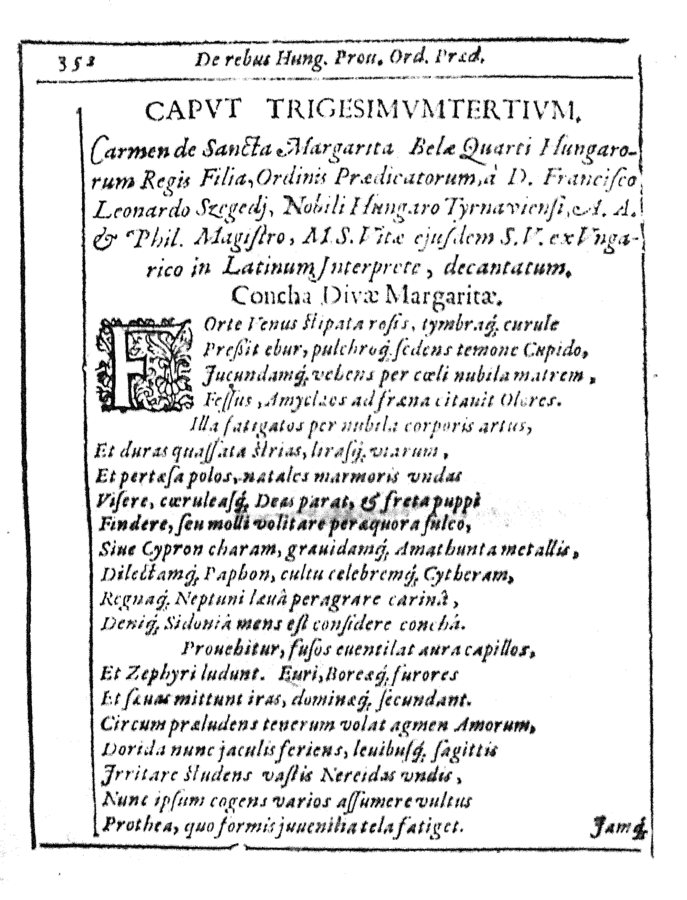 352 De rebus Hung. Prou. Ord. Præd.
CAPVT TRIGESIMVMTERTIVM.
Carmen de Sancta Margarita Belæ Quarti Hungaro-
rum Regis Filia, Ordinis Prædicatorum, à D. Franciſco
Leonardo Szegedj, Nobili Hungaro Tyrnavienſi, A. A.
& Phil. Magiſtro, M.S. Vitæ ejuſdem S.V. ex Vnga-
rico in Latinum Jnterprete, decantatum.
Concha Divæ Margaritæ.
FOrte Venus ſtipata roſis, tymbraq́; curule
Preſſit ebur, pulchroq́; ſedens temone Cupido,
Jucundamq́; vehens per cœli nubila matrem,
Feſſus, Amyclæos ad fræna citauit Olores.
Illa fatigatos per nubila corporis artus,
Et duras quaſſata ſtrias, liraſq́; viarum,
Et pertæſa polos, natales marmoris vndas
Viſere, cœruleaſq́; Deas parat, & freta puppi
Findere, ſeu molli volitare per æquora ſulco,
Siue Cypron charam, grauidamq́; Amathunta metallis,
Dilectamq́; Paphon, cultu celebremq́; Cytheram,
Regnaq́; Neptuni læuâ peragrare carinâ,
Deniq́; Sidoniâ mens eſt conſidere conchâ.
Prouehitur, fuſos euentilat aura capillos,
Et Zephyri ludunt. Euri, Boreæq́; furores
Et ſæuas mittunt iras, dominæq́; ſecundant.
Circum præludens tenerum volat agmen Amorum,
Dorida nunc jaculis feriens, leuibuſq́; ſagittis
Jrritare ſtudens vaſtis Nereidas vndis,
Nunc ipſum cogens varios aſſumere vultus
Prothea, quo formis juuenilia tela fatiget.
Jamq́;